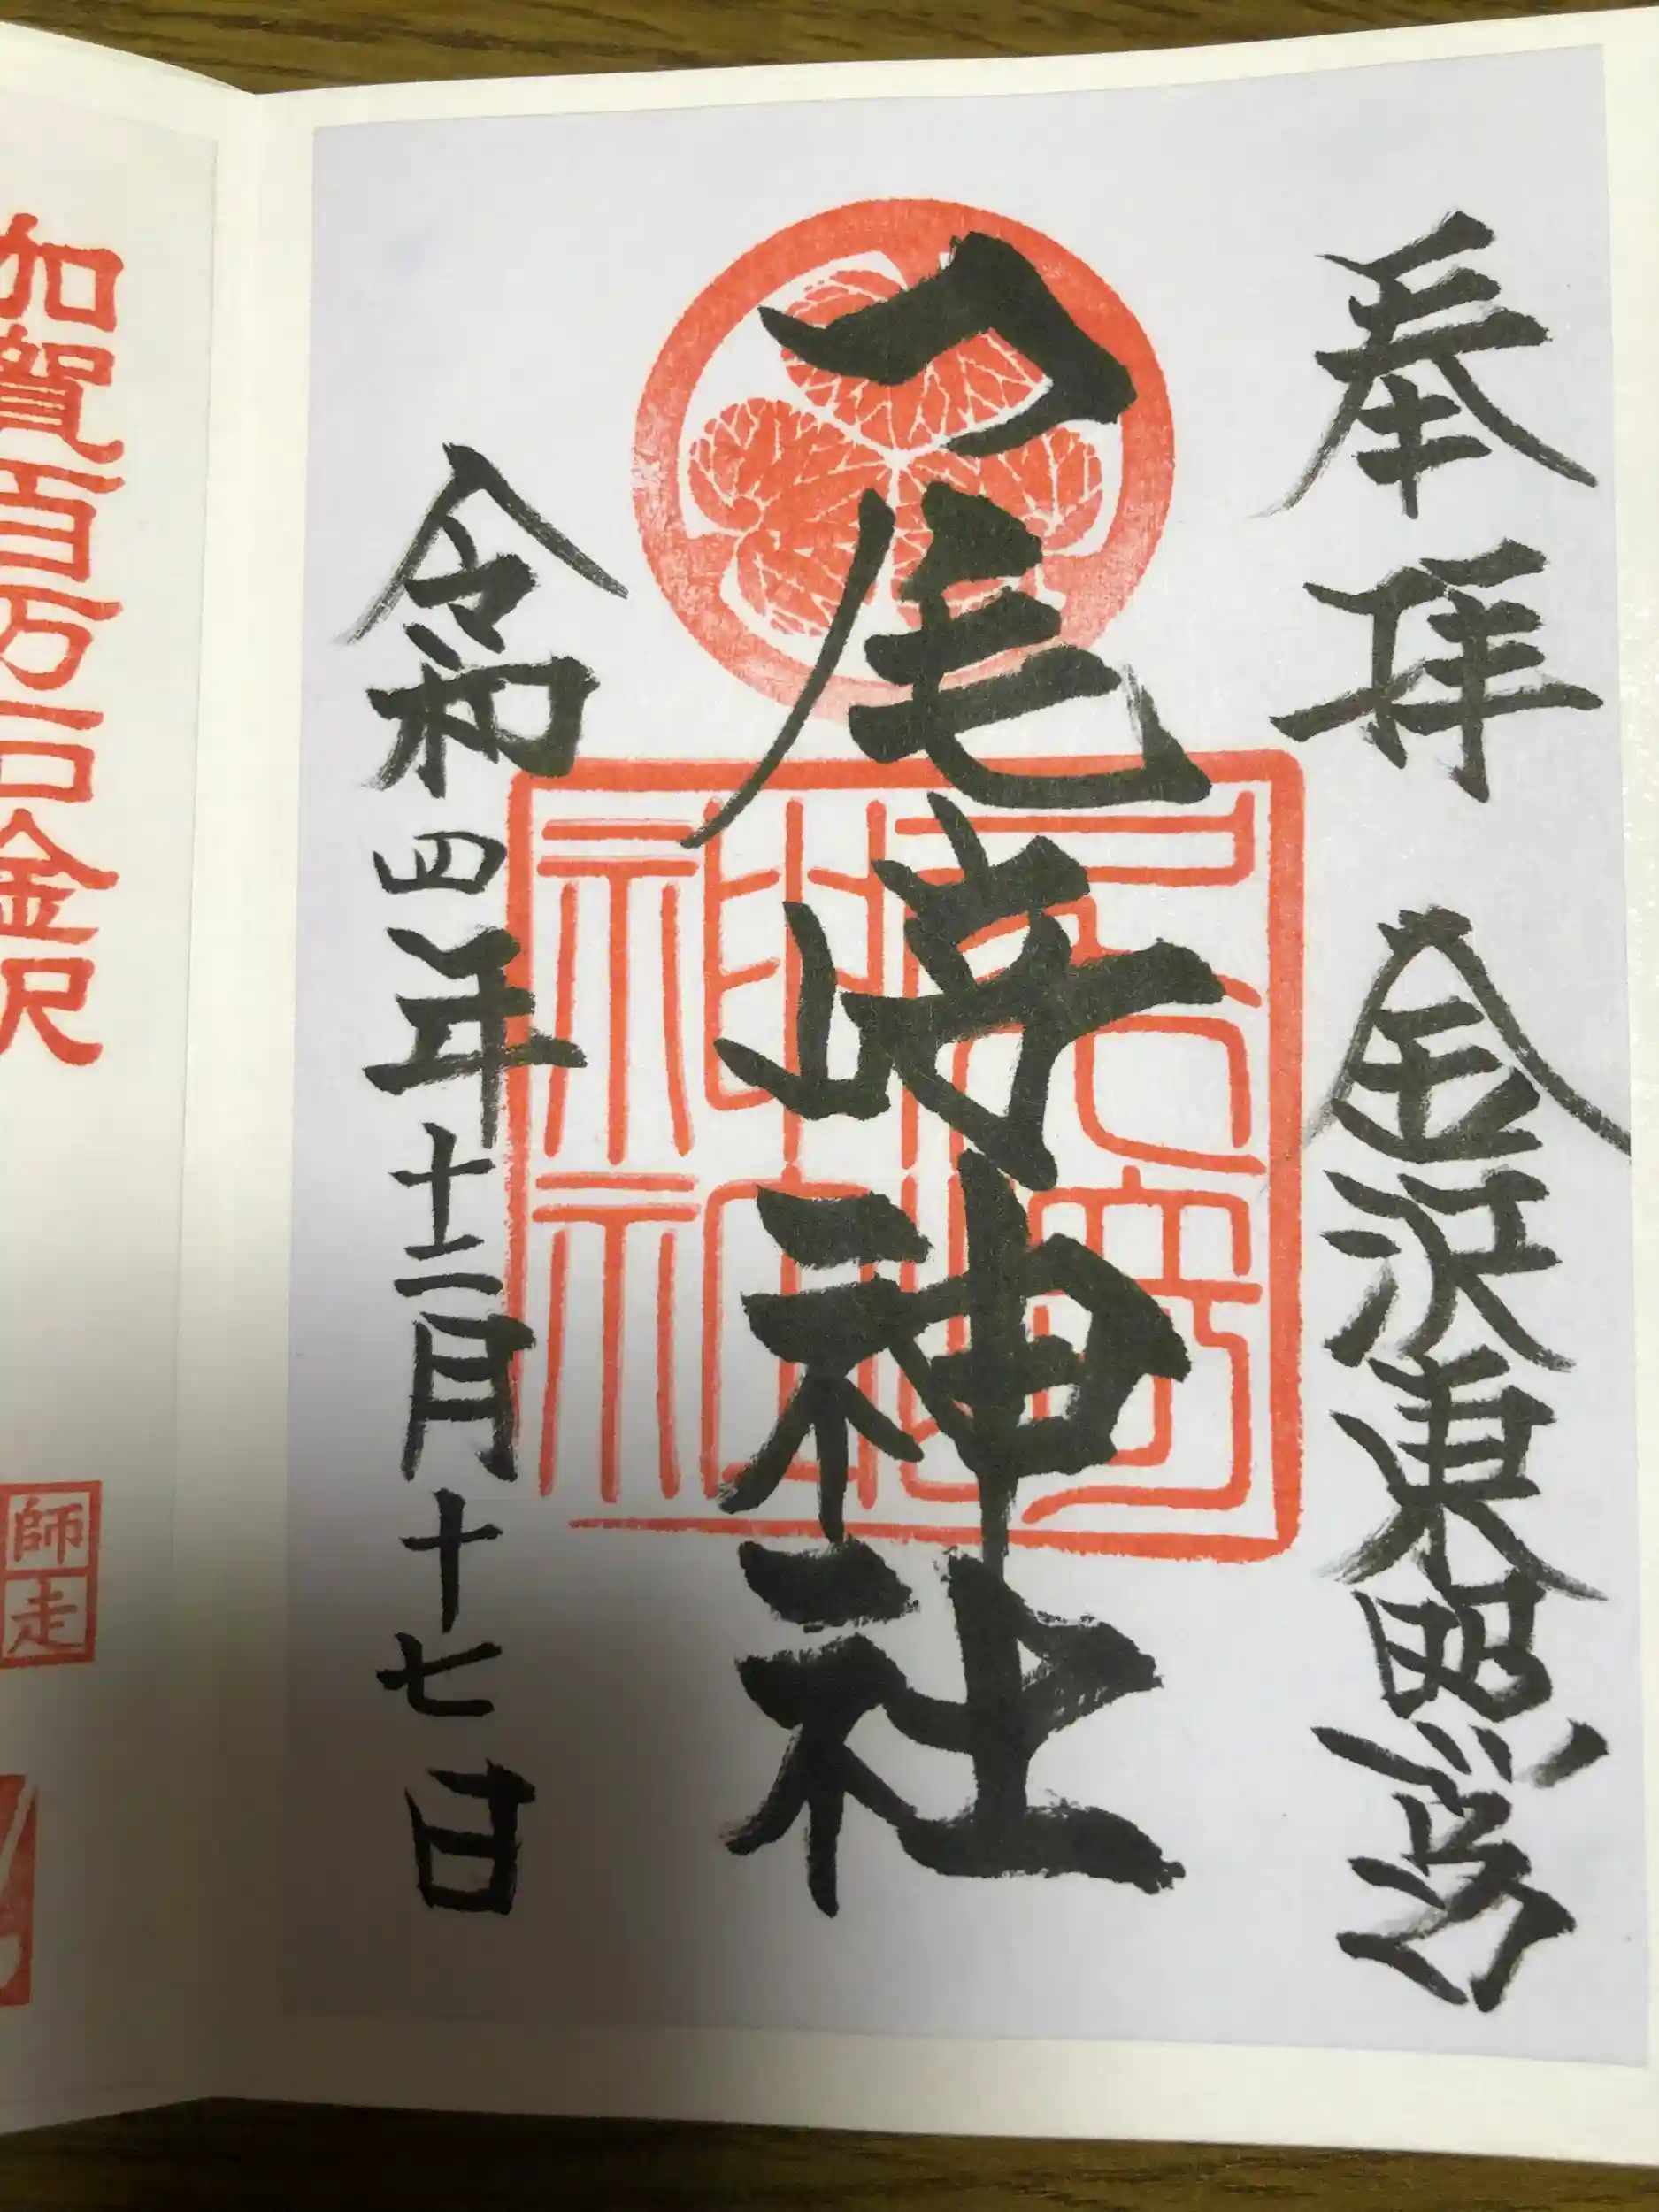 奉拝 金沢東照宮
尾崎神社
令和四年十二月十七日
尾崎神社
加賀百万石金沢
師走